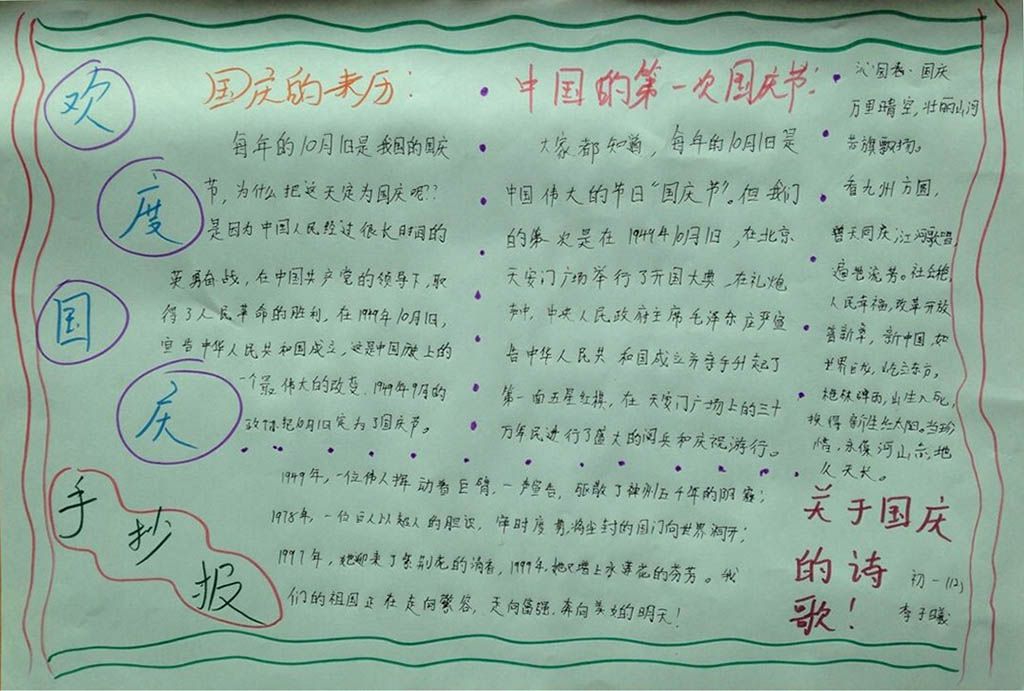 欢
度
国
庆
手
抄
报
国庆的来历：
每年的10月1日是我国的国庆
节，为什么把这天定为国庆呢??
是因为中国人民经过很长时间的
英勇奋战，在中国共产党的领导下，取
得了人民革命的胜利，在1949年10月1日，
宣告中华人民共和国成立，这是中国历史上的
一个最伟大的改变，1949年9月的
政协把10月1日定为了国庆节。
中国的第一次国庆节：
大家都知道，每年的10月1日是
中国伟大的节日“国庆节”。但我们
的第一次是在1949年10月1日，在北京
天安门广场举行了开国大典，在礼炮
声中，中央人民政府主席毛泽东庄严宣
告中华人民共和国成立并亲手升起了
第一面五星红旗，在天安门广场上的三十
万军民进行了盛大的阅兵和庆祝游行。
沁园春·国庆
万里晴空，壮丽山河
各旗飘扬。
看九州方圆，
普天同庆，江河歌唱，
遍地流芳。社会
人民幸福，改革开放
新中国，如
世界巨龙，屹立东方。
出生入死，
换得新生红太阳。当珍
惜，永保河山，地
久天长。
1949年，一位伟人挥动着巨臂，一声宣告，驱散了神州五千年的阴霾；
1978年，一位巨人以超人的胆识，审时度势，将尘封的国门向世界洞开；
1997年，她迎来了紫荆花的清香，1999年，她又增上水莲花的芬芳。我
们的祖国正在走向繁荣，走向富强，奔向美好的明天！
关于国庆
的诗
歌！
初一(12)
李子曦